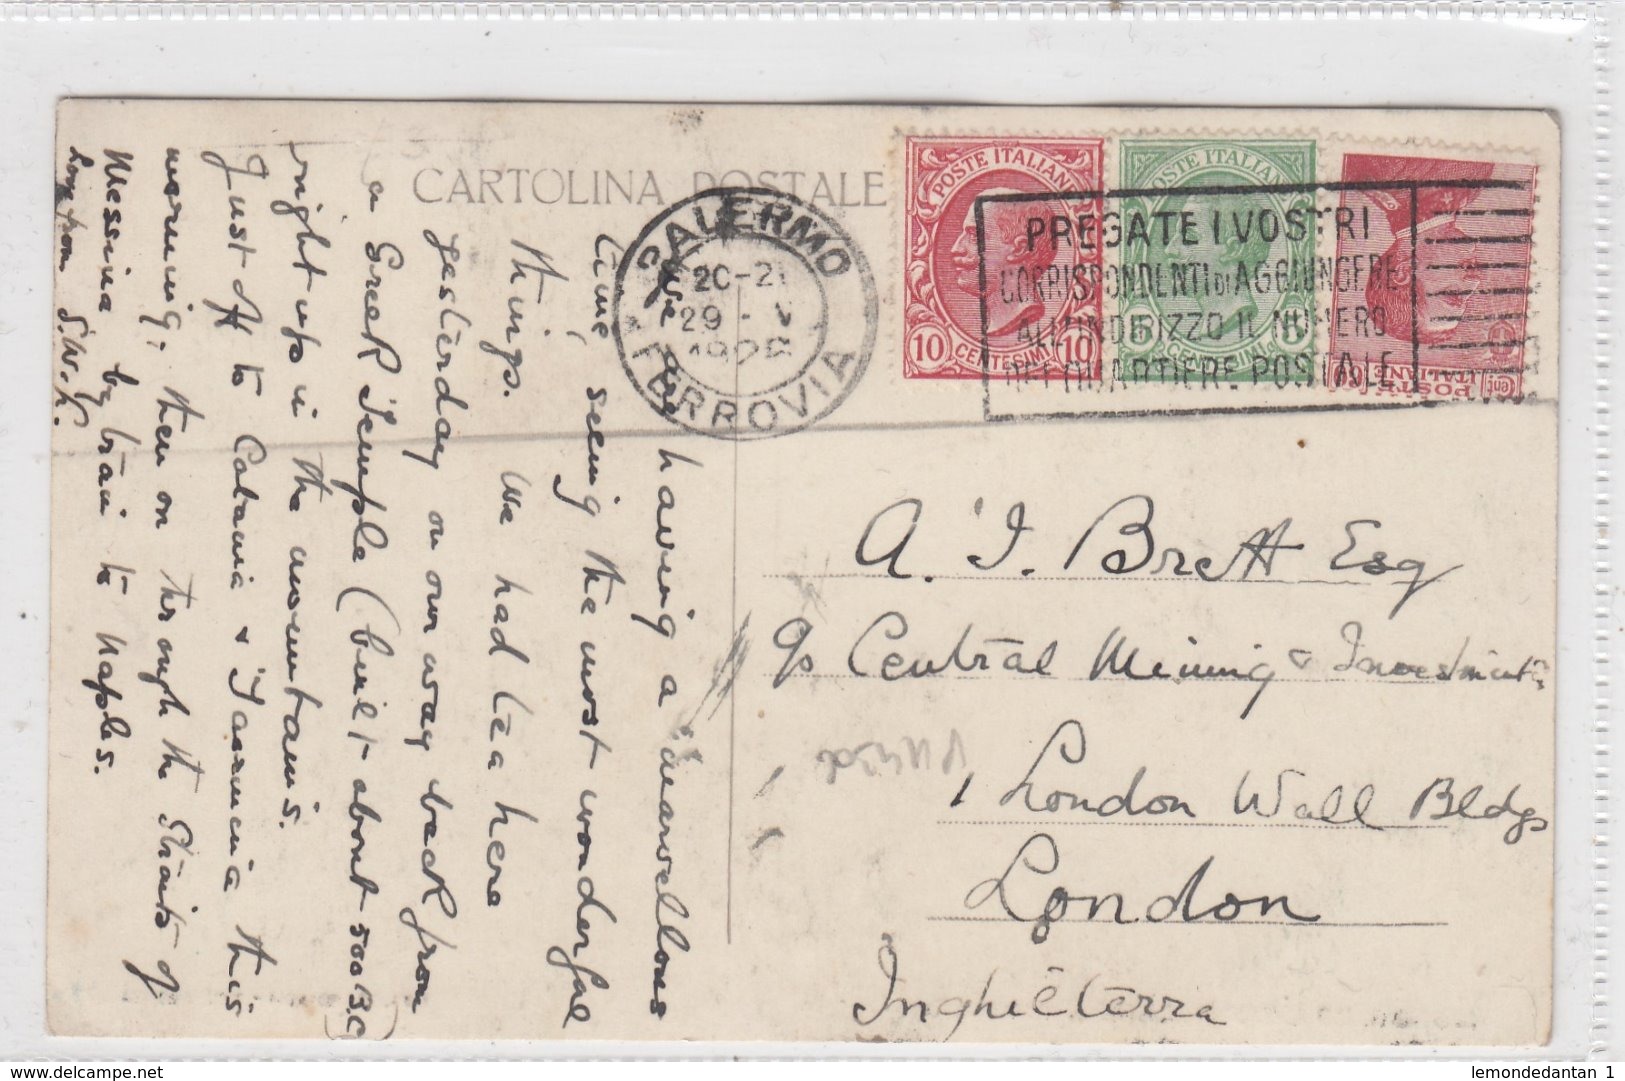 CARTOLINA POSTALE
PALERMO
20-21
29
FERROVIA
POSTE ITALIANE
10 CENTESIMI 10
POSTE ITALIANE
5 CENTESIMI 5
POSTE ITALIANE
60 60
PREGATE I VOSTRI
CORRISPONDENTI DI AGGIUNGERE
ALL'INDIRIZZO IL NUMERO
DEL QUARTIERE POSTALE
We are having a marvellous
time, seeing the most wonderful
things. We had tea here
yesterday on our way back from
a Greek Temple (built about 500 B.C)
right up in the mountains.
Just off to Catania & Taormina this
morning, then on through the Straits of
Messina by train to Naples.
Love from S.W.K.
A. J. Brett Esq
c/o Central Mining & Investment
1 London Wall Bldgs
London
Inghilterra
lemondedantan 1